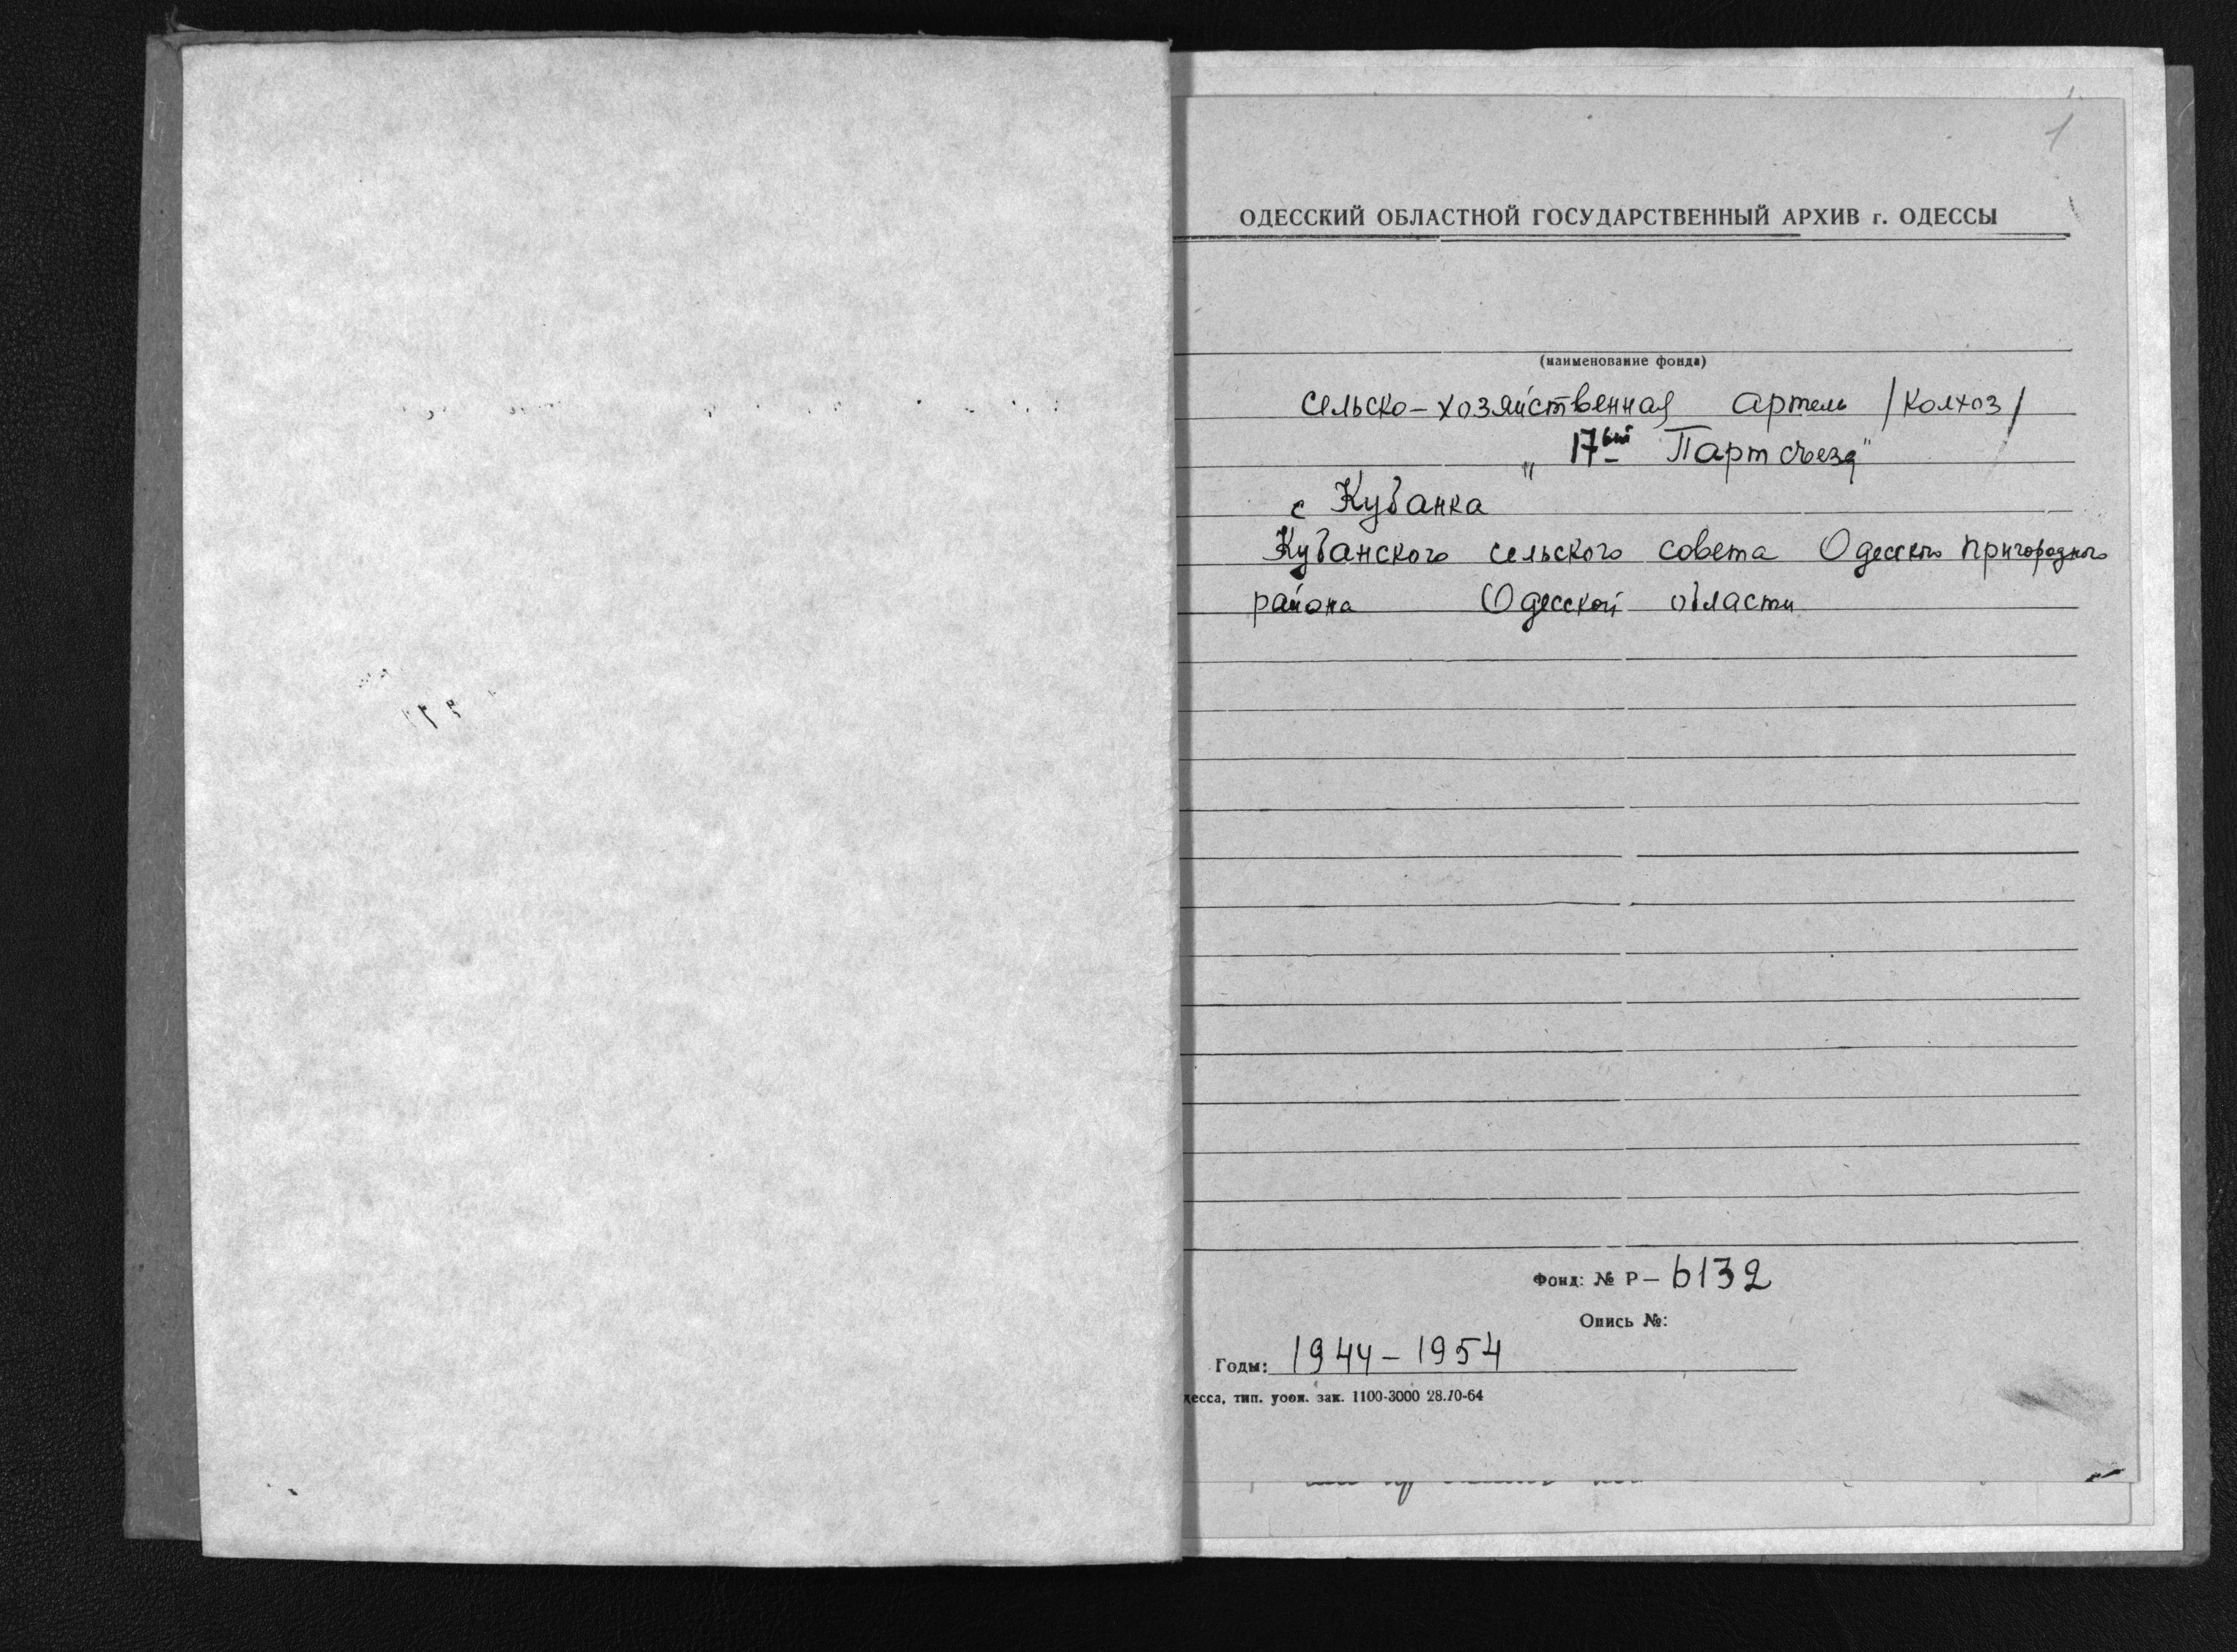 1
ОДЕССКИЙ ОБЛАСТНОЙ ГОСУДАРСТВЕННЫЙ АРХИВ г. ОДЕССЫ
(наименование фонда)
Сельско-хозяйственная артель /колхоз/
„17ый Партсъезд"
с Кубанка
Кубанского сельского совета Одесского пригородного
района Одесской области
Фонд: № Р— 6132
Опись №:
Годы: 1944-1954
десса, тип. зак. 1100-3000 28.10-64